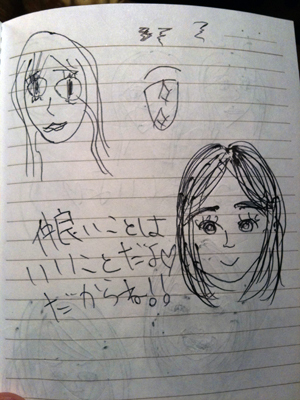 仲良いことは
いいことだよ♡
だからね!!